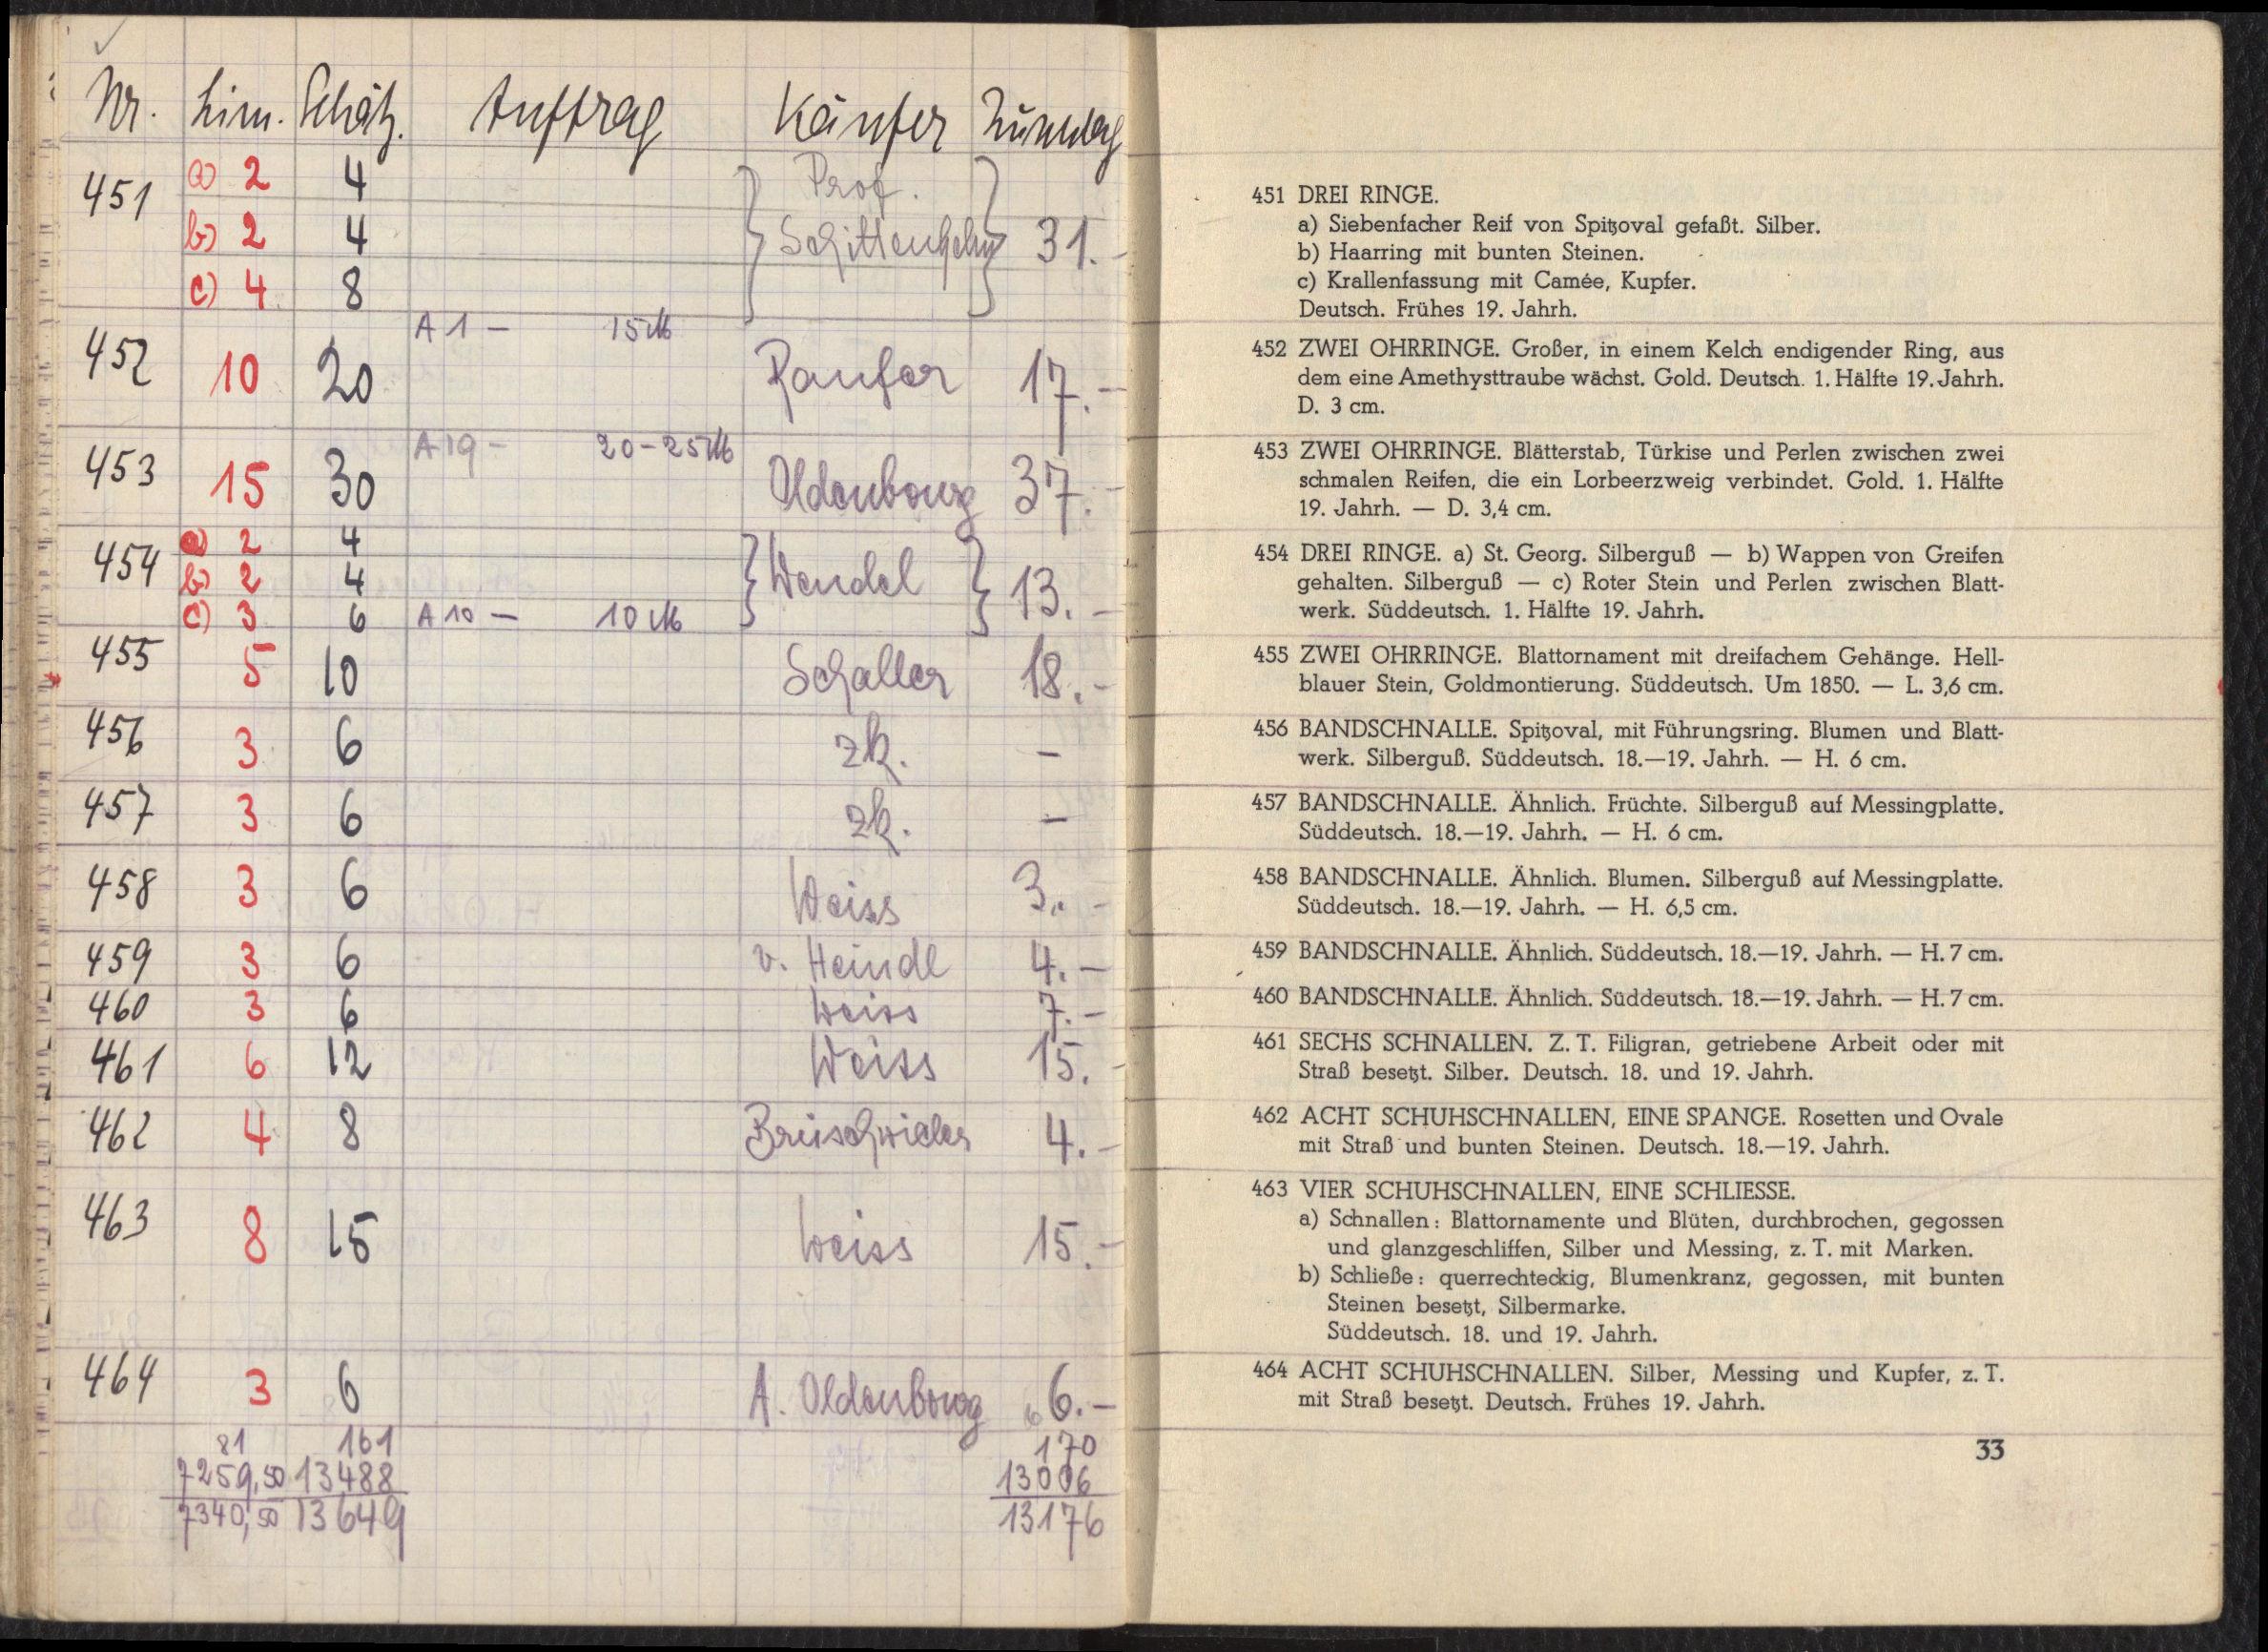 Nr. Lim. Schätz. Auftrag Käufer Zuschlag
451 a) 2 4 Prof.
b) 2 4 Schittenhelm 31.-
c) 4 8
A 1 - 15 M
452 10 20 Ranfer 17.-
A 19 - 20-25 M
453 15 30 Oldenbourg 37.-
454 a) 2 4
b) 2 4 Wendel 13.-
c) 3 6 A 10 - 10 M
455 5 10 Schaller 18.-
456 3 6 zk. -
457 3 6 zk. -
458 3 6 Weiss 3.-
459 3 6 v. Heindl 4.-
460 3 6 Weiss 7.-
461 6 12 Weiss 15.-
462 4 8 4.-
463 8 15 Weiss 15.-
464 3 6 A. Oldenbourg 6.-
81 161 170
7259,50 13488 13006
7340,50 13649 13176
451 DREI RINGE.
a) Siebenfacher Reif von Spitzoval gefaßt. Silber.
b) Haarring mit bunten Steinen.
c) Krallenfassung mit Camée, Kupfer.
Deutsch. Frühes 19. Jahrh.
452 ZWEI OHRRINGE. Großer, in einem Kelch endigender Ring, aus
dem eine Amethysttraube wächst. Gold. Deutsch. 1. Hälfte 19. Jahrh.
D. 3 cm.
453 ZWEI OHRRINGE. Blätterstab, Türkise und Perlen zwischen zwei
schmalen Reifen, die ein Lorbeerzweig verbindet. Gold. 1. Hälfte
19. Jahrh. — D. 3,4 cm.
454 DREI RINGE. a) St. Georg. Silberguß — b) Wappen von Greifen
gehalten. Silberguß — c) Roter Stein und Perlen zwischen Blatt-
werk. Süddeutsch. 1. Hälfte 19. Jahrh.
455 ZWEI OHRRINGE. Blattornament mit dreifachem Gehänge. Hell-
blauer Stein, Goldmontierung. Süddeutsch. Um 1850. — L. 3,6 cm.
456 BANDSCHNALLE. Spitzoval, mit Führungsring. Blumen und Blatt-
werk. Silberguß. Süddeutsch. 18.—19. Jahrh. — H. 6 cm.
457 BANDSCHNALLE. Ähnlich. Früchte. Silberguß auf Messingplatte.
Süddeutsch. 18.—19. Jahrh. — H. 6 cm.
458 BANDSCHNALLE. Ähnlich. Blumen. Silberguß auf Messingplatte.
Süddeutsch. 18.—19. Jahrh. — H. 6,5 cm.
459 BANDSCHNALLE. Ähnlich. Süddeutsch. 18.—19. Jahrh. — H. 7 cm.
460 BANDSCHNALLE. Ähnlich. Süddeutsch. 18.—19. Jahrh. — H. 7 cm.
461 SECHS SCHNALLEN. Z. T. Filigran, getriebene Arbeit oder mit
Straß besetzt. Silber. Deutsch. 18. und 19. Jahrh.
462 ACHT SCHUHSCHNALLEN, EINE SPANGE. Rosetten und Ovale
mit Straß und bunten Steinen. Deutsch. 18.—19. Jahrh.
463 VIER SCHUHSCHNALLEN, EINE SCHLIESSE.
a) Schnallen: Blattornamente und Blüten, durchbrochen, gegossen
und glanzgeschliffen, Silber und Messing, z. T. mit Marken.
b) Schließe: querrechteckig, Blumenkranz, gegossen, mit bunten
Steinen besetzt, Silbermarke.
Süddeutsch. 18. und 19. Jahrh.
464 ACHT SCHUHSCHNALLEN. Silber, Messing und Kupfer, z. T.
mit Straß besetzt. Deutsch. Frühes 19. Jahrh.
33